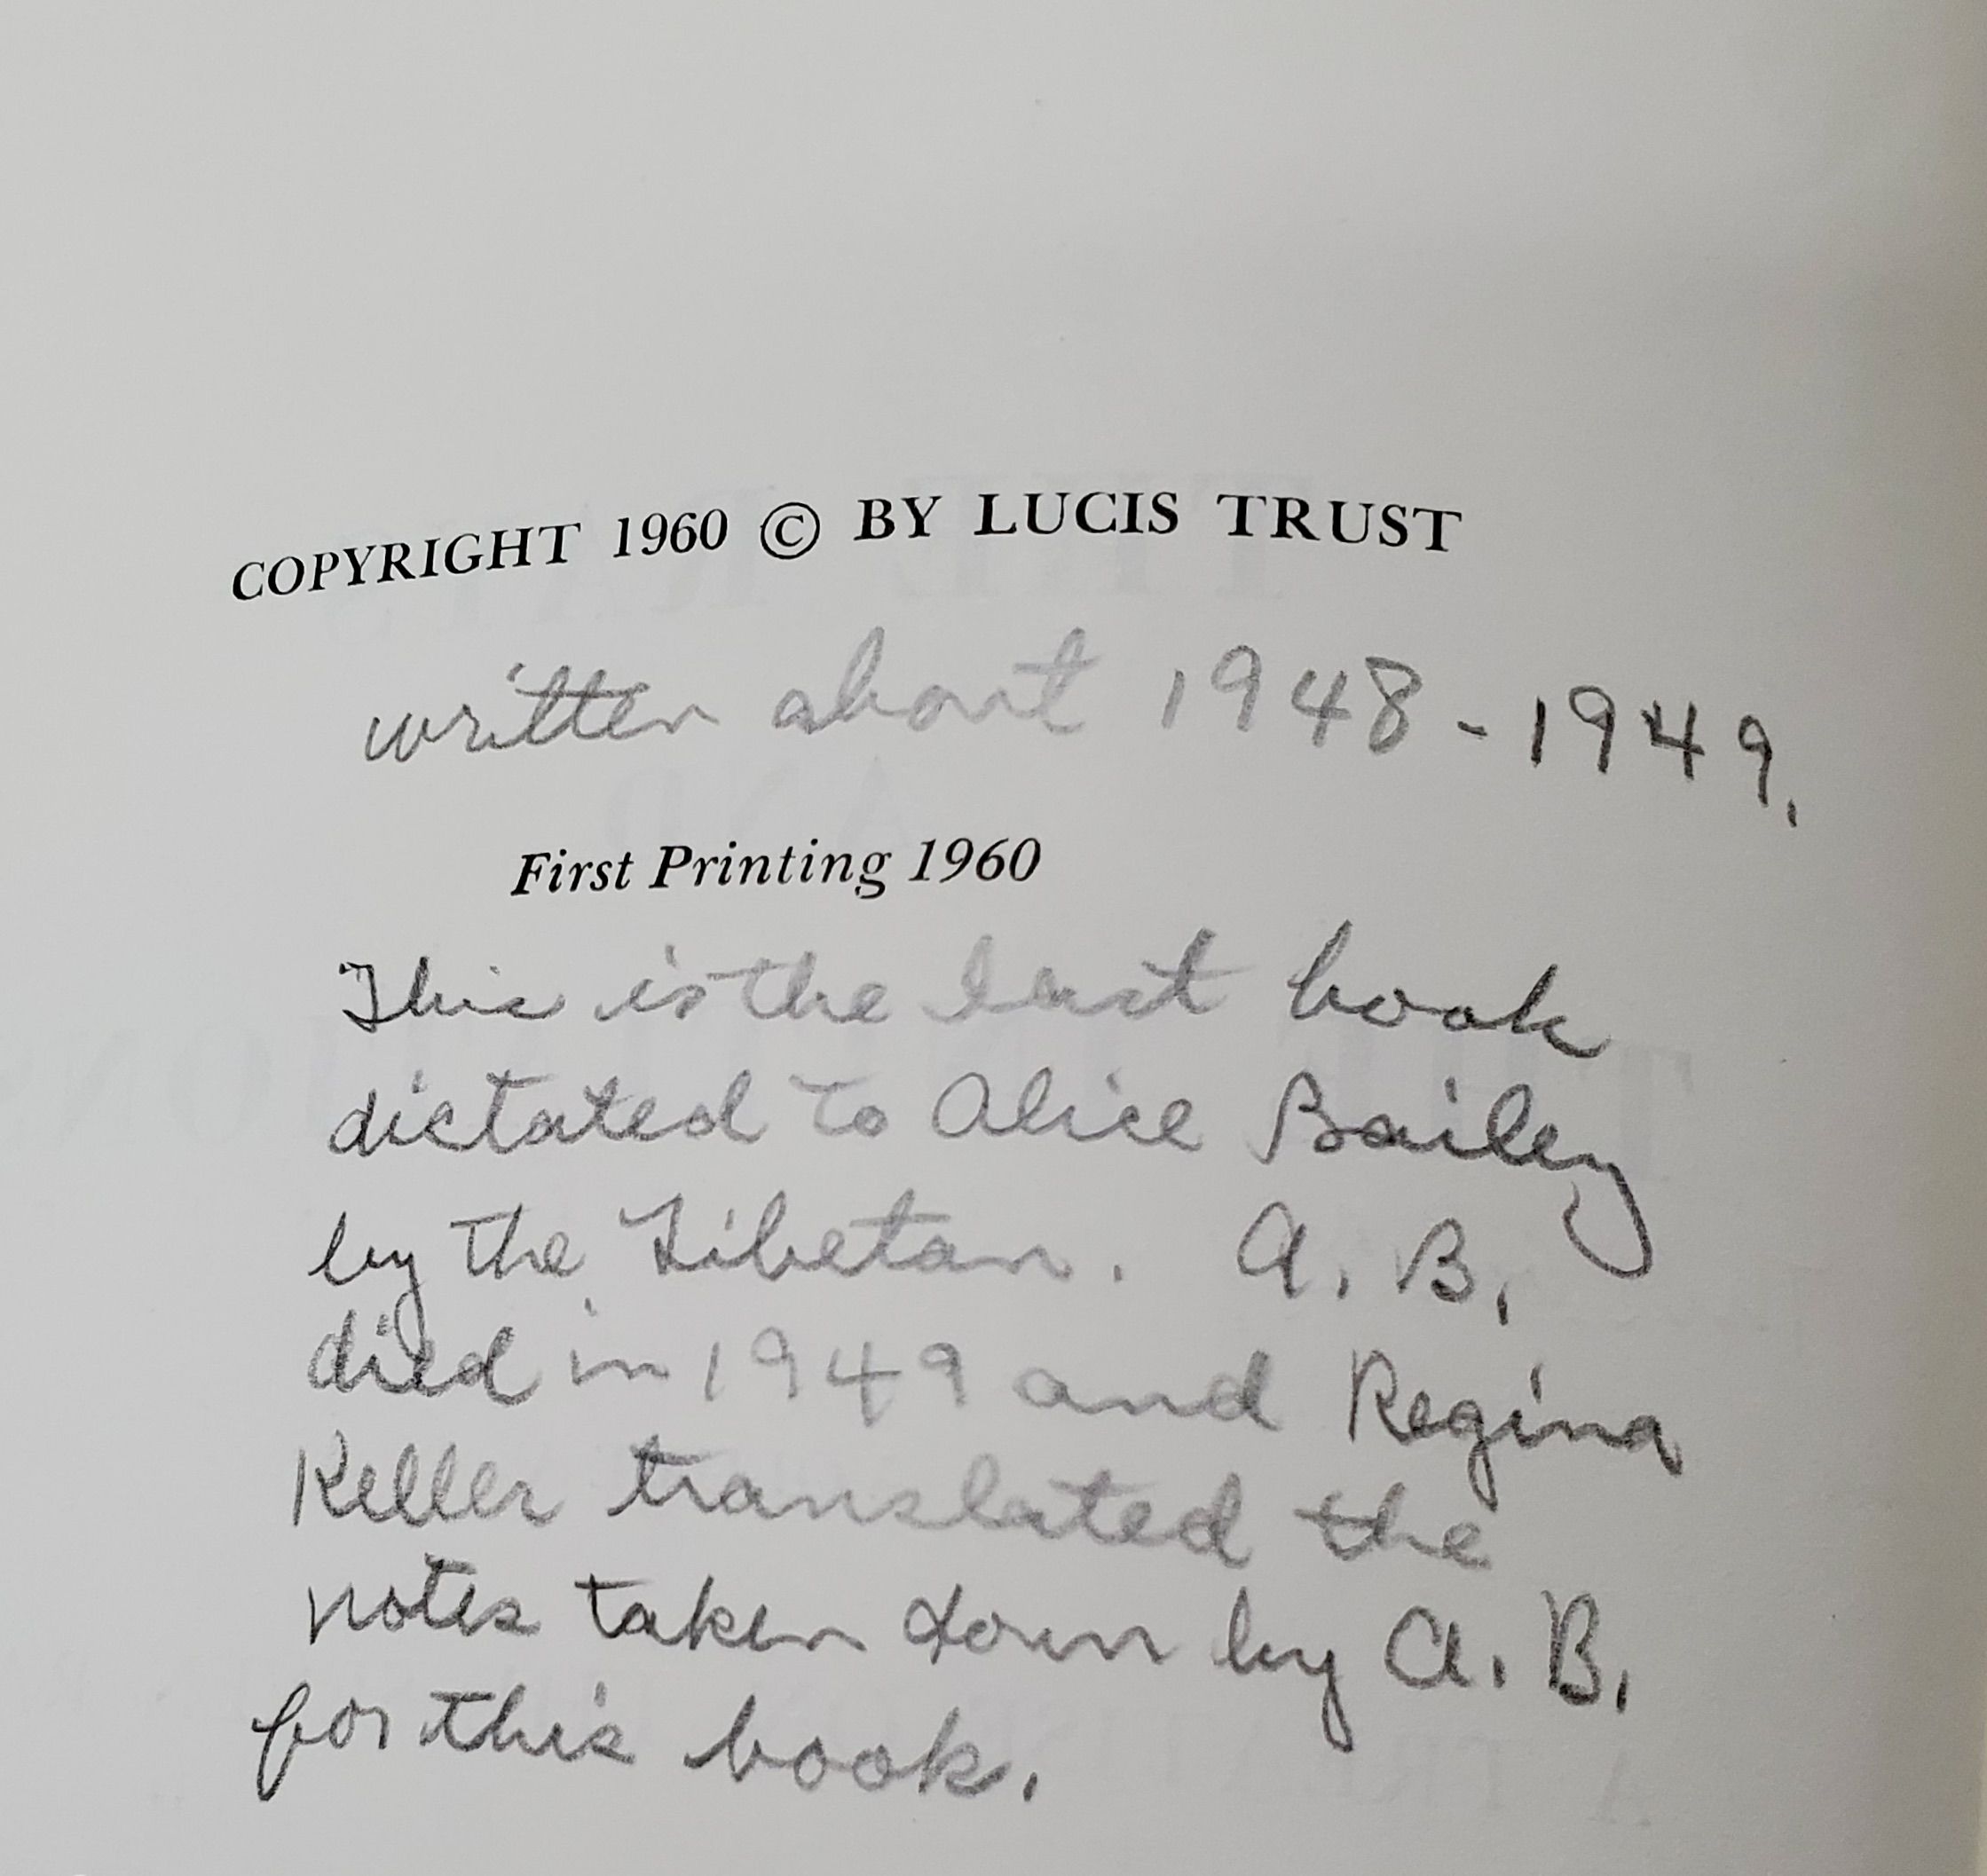 COPYRIGHT 1960 © BY LUCIS TRUST
written about 1948-1949.
First Printing 1960
This is the last book
dictated to Alice Bailey
by the Tibetan. A. B.
died in 1949 and Regina
Keller translated the
notes taken down by A. B.
for this book.